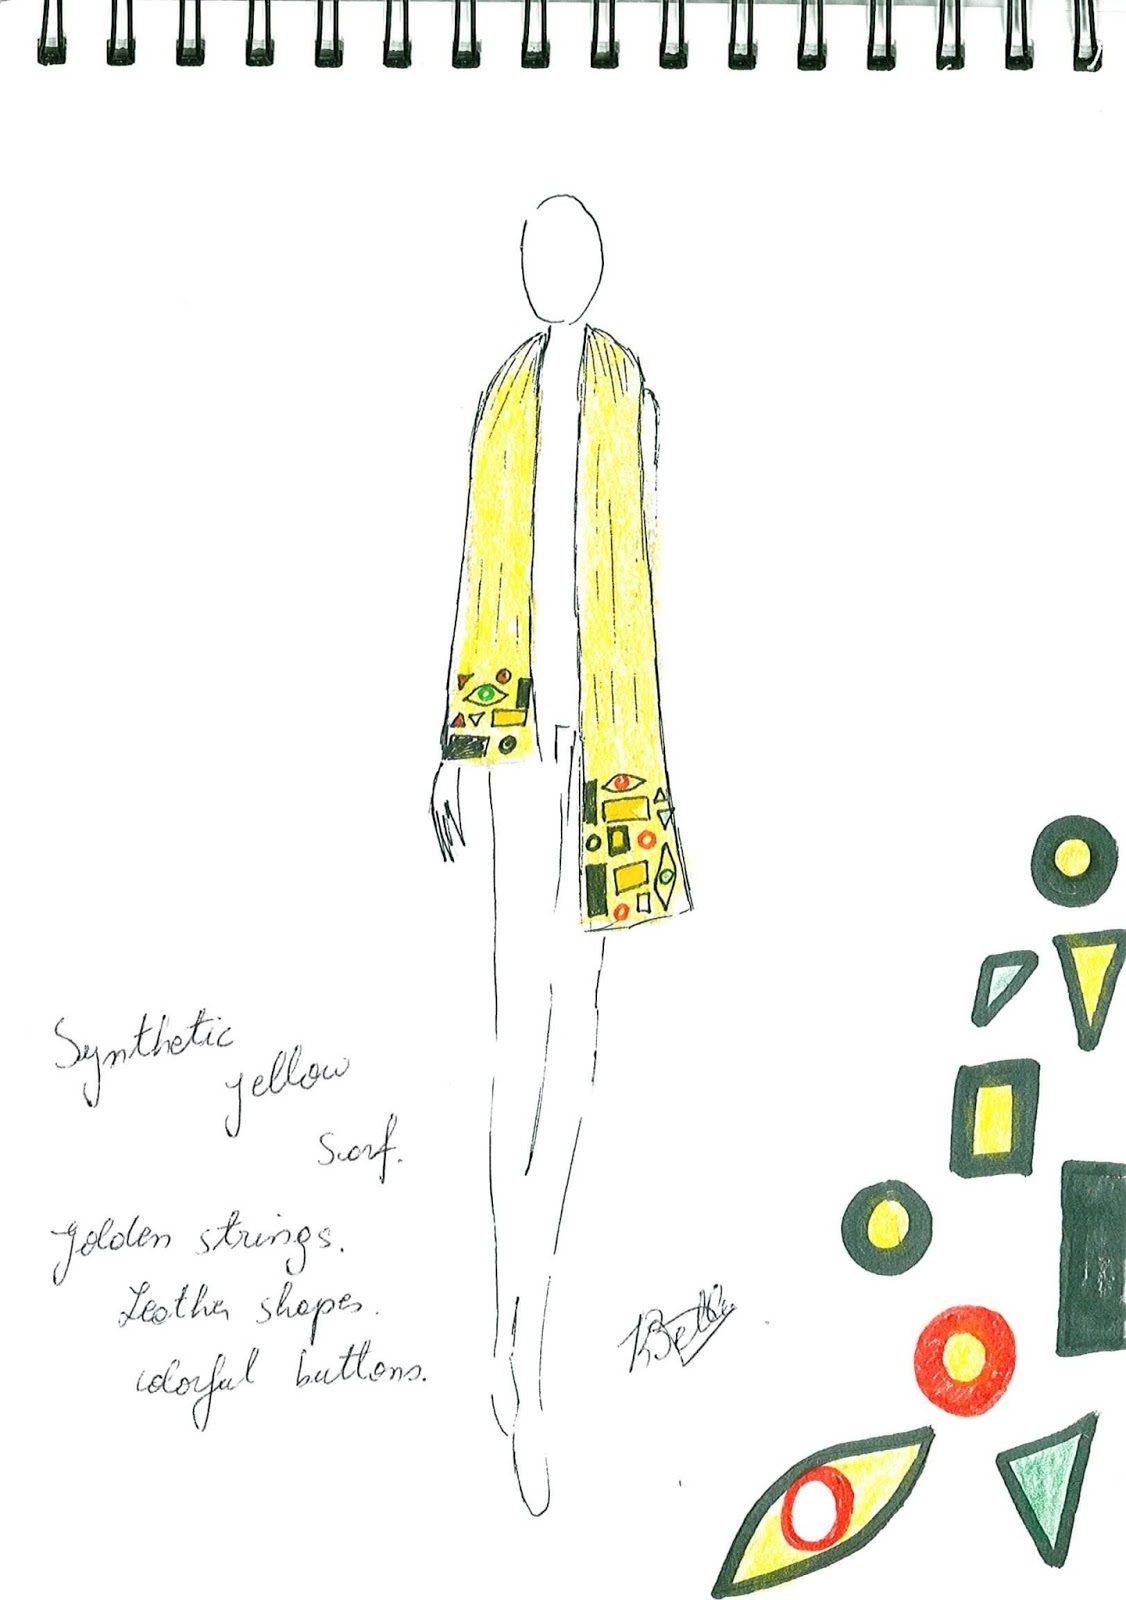 Synthetic
yellow
scarf.
golden strings.
Leather shapes.
colorful buttons.
KBettie